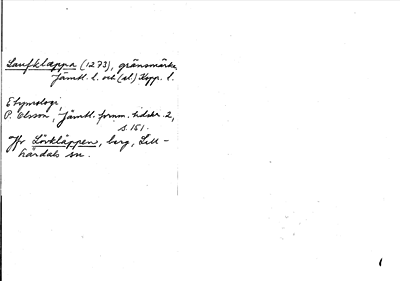 Laufklæppa (1273), gränsmärke
Jämtl. l. och (al) Kopp. l.
Etymologi:
P. Olsson, Jämtl. fornm. tidskr. 2,
s. 151.
Jfr Lövkläppen, berg, Lill-
härdals sn.